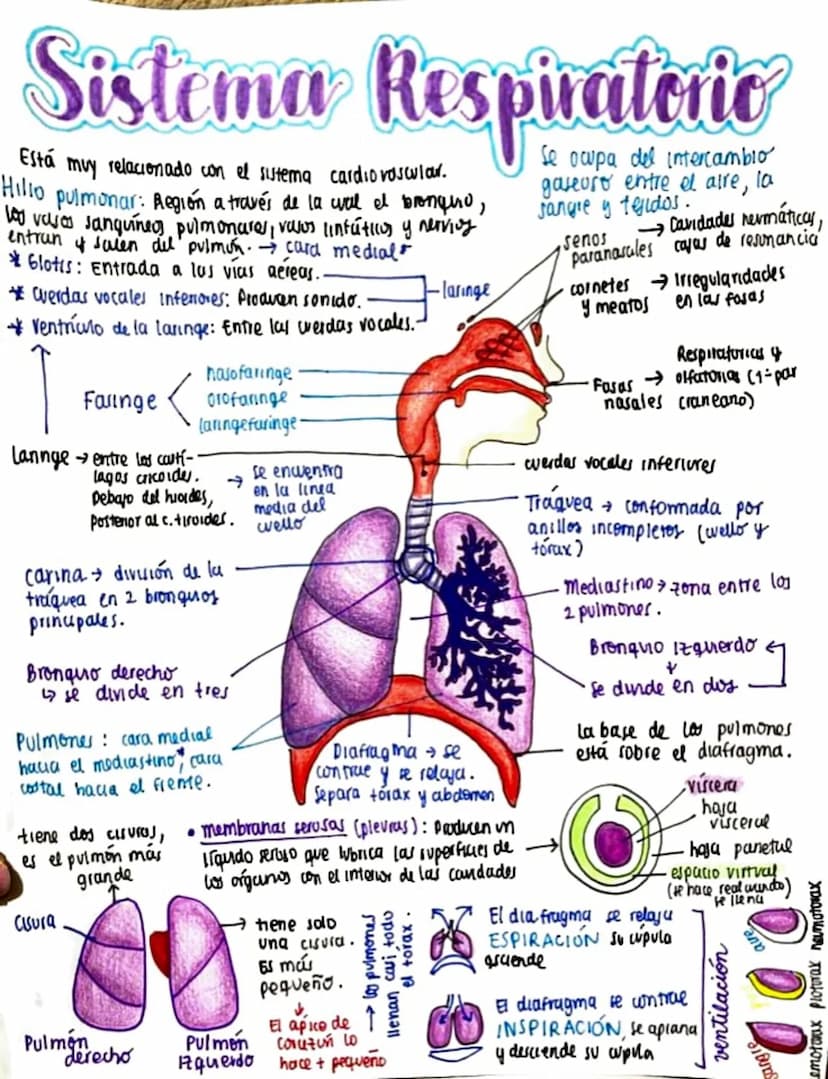 Sistema Respiratorio
Está muy relacionado con el sistema cardiovascular.
Hilio pulmonar: Región a través de la cual el bronquio,
los vasos sanguíneos pulmonares, vasos linfáticos y nervios
entran y salen del pulmón. → cara medial
* Glotis: Entrada a las vías aéreas.
* Cuerdas vocales inferiores: Producen sonido.
* Ventrículo de la laringe: Entre las cuerdas vocales.
laringe
Se ocupa del intercambio
gaseoso entre el aire, la
sangre y tejidos.
senos
paranasales
→ Cavidades neumáticas,
cajas de resonancia
cornetes
y meatos
→ Irregularidades
en las fosas
Fosas
nasales
→
Respiratorias y
olfatorias (1er par
craneano)
Faringe
nasofaringe
orofaringe
laringofaringe
Laringe → entre los cartí-
lagos cricoides.
Debajo del hioides,
posterior al c. tiroides.
→ se encuentra
en la línea
media del
cuello
cuerdas vocales inferiores
Tráquea → conformada por
anillos incompletos (cuello y
tórax)
carina → división de la
tráquea en 2 bronquios
principales.
Mediastino → zona entre los
2 pulmones.
Bronquio derecho
↳ se divide en tres
Bronquio Izquierdo
↓
se divide en dos
Pulmones: cara medial
hacia el mediastino, cara
costal hacia el frente.
Diafragma → se
contrae y se relaja.
Separa tórax y abdomen
la base de los pulmones
está sobre el diafragma.
• membranas serosas (pleuras): Producen un
líquido seroso que lubrica las superficies de
los órganos con el interior de las cavidades
víscera
hoja
visceral
hoja parietal
espacio virtual
(se hace real cuando)
se llena
tiene dos cisuras,
es el pulmón más
grande
cisura
Pulmón
derecho
Pulmón
Izquierdo
→ tiene solo
una cisura.
Es más
pequeño.
↓
El ápice de
corazón lo
hace + pequeño
→ los pulmones
llenan casi todo
el tórax.
El diafragma se relaja
ESPIRACIÓN su cúpula
asciende
El diafragma se contrae
INSPIRACIÓN, se aplana
y desciende su cúpula
ventilación
aire
sangre
neumotorax
piotorax
hemotorax